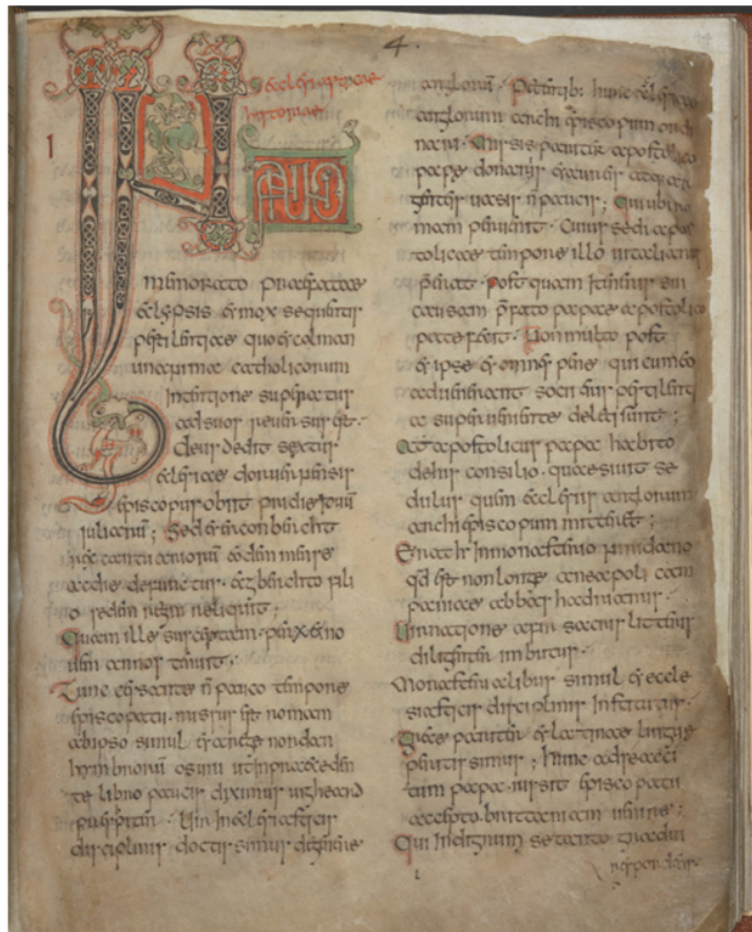 4.
ecclesiasticae
historiae
I
IN ANNO
memorato praefatae
eclypsis et mox sequentis
pestilentiae quo et colman
unanimae catholicorum
intentione superatur
ad suos reuersus est.
deusdedit sextus
eclesiae doruuernensis
episcopus obiit pridie iduum
iuliarum; Sed et erconberht
rex cantuariorum eodem mense
ac die defunctus. ecgberhto fili
o sedem regni reliquit;
Quam ille susceptam. per X et no
uem annos tenuit.
Tunc cessante ñ pauco tempore
episcopatu. missus est romam
ab ipso simul et a rege nordan
hymbroruū osuiu ut in praecedén
te libro paucis diximus uigheard
praesbiter. Uir in eclesiasticis
disciplinis doctissimus de genere
anglorū. Petentib: hunc eclesiae
anglorum archiepiscopum ordi
nari. missis pariter apostolico
papae donariis et aureis atque ar
genteis uasis ñ paucis; Qui ubi ro
mam peruenit. Cuius sedi apos
tolicae tempore illo uitalianus
praeerat. Post quam itineris sui
causam p̄fato papae apostolico
patefecit. Non multo post
et ipse et omnes pene qui cum eo
aduenerant socii eius pestilenti
a superueniente deleti sunt;
At apostolicus papa habito
de his consilio. quaesiuit se
dulus quem eclesiis anglorum
archiepiscopum mitteret;
Erat in monasterio
qd est non longe a neapoli cam
paniae abbas hadrianus.
Uir natione afir sacris litteris
diligenter imbutus.
Monasterialibus simul et ecle
siasticis disciplinis institutus.
Grecae pariter et latinae linguae
peritissimus; Hunc ad se acci
tum papa. iussit episcopatu
accepto. brittaniam uenire;
Qui indignum se tanto gradui
respondens.